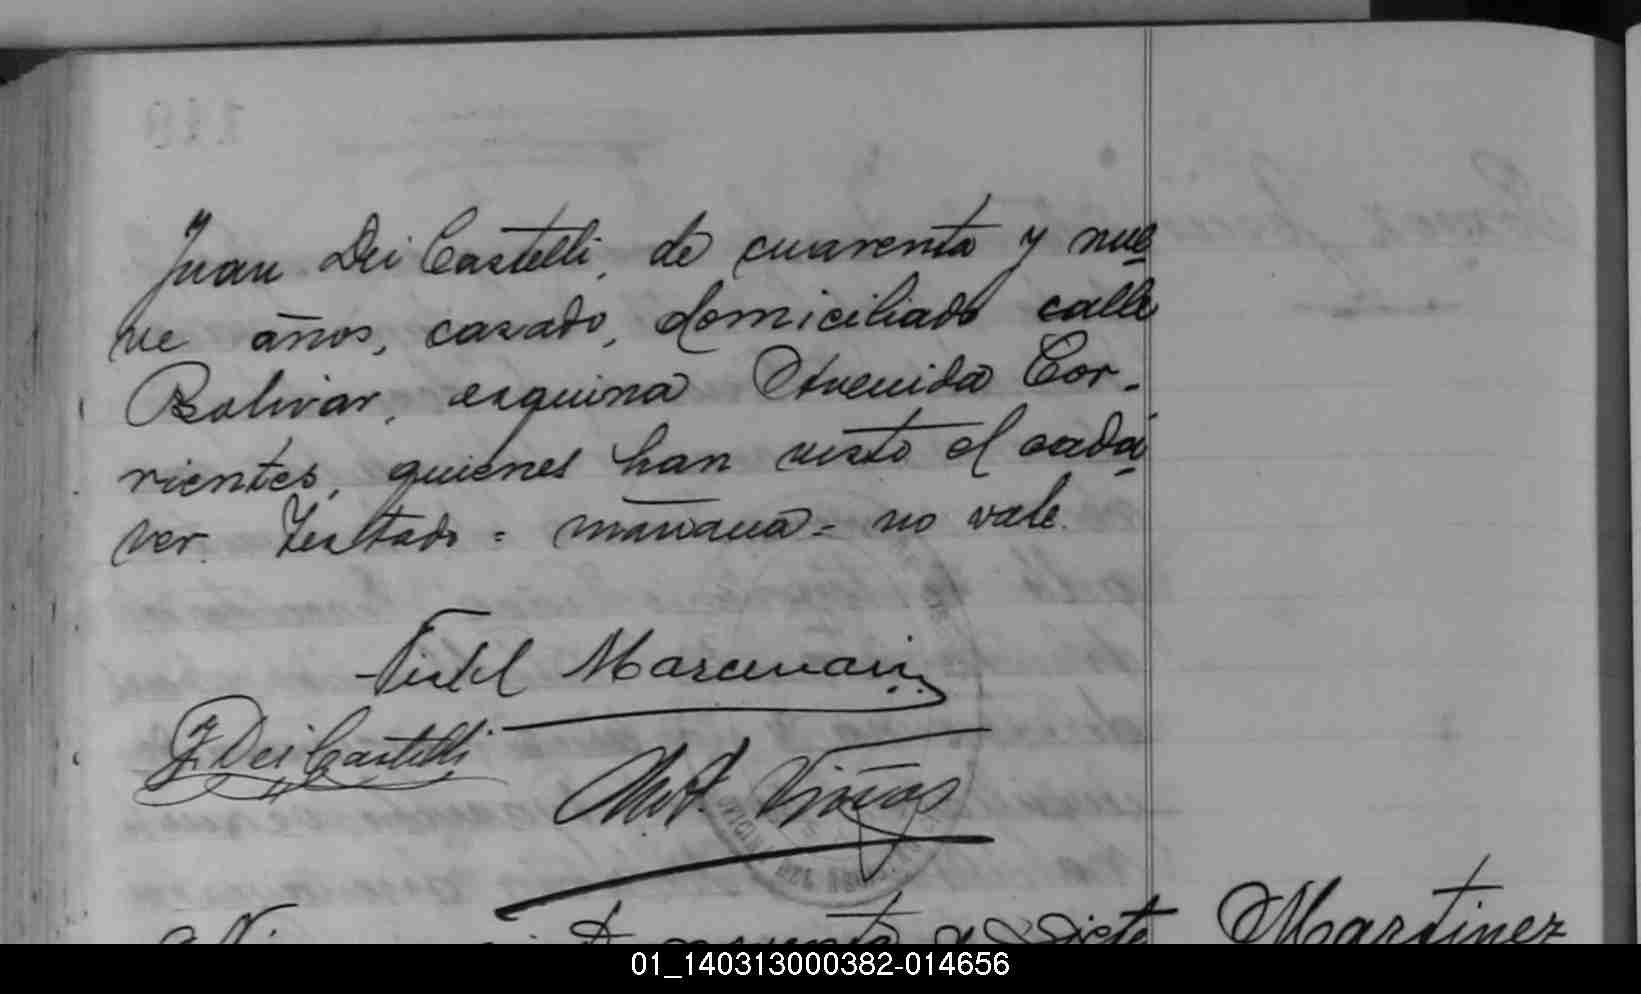 Juan Dei Castelli, de cuarenta y nue
ve años, casado, domiciliado calle
Bolivar, esquina Avenida Cor-
rientes, quienes han visto el cadá
ver. Testado = mañana = no vale.
Fidel
J. Dei Castelli
Viñas
cuarenta y siete Martinez
01_140313000382-014656